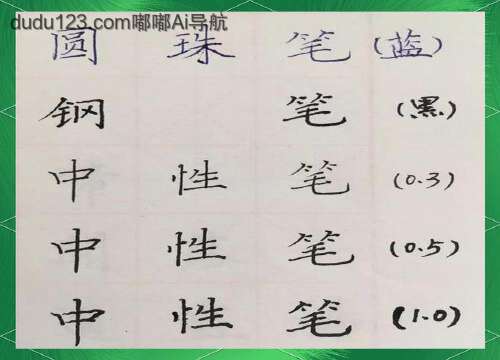 dudu123.com嘟嘟Ai导航
圆珠笔(蓝)
钢笔(黑)
中性笔(0.3)
中性笔(0.5)
中性笔(1.0)